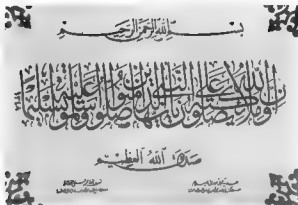 بسم الله الرحمن الرحيم
إن الله وملائكته يصلون على النبي يا أيها الذين آمنوا صلوا عليه وسلموا تسليما
صدق الله العظيم